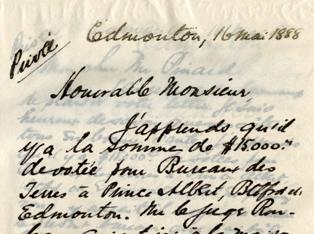 Edmonton, 16 mai 1888
Privée
Honorable Monsieur
J'apprends qu'il
y a la somme de $15000.00
de votée pour Bureaux des
Terres à Prince Albert, Battleford
Edmonton. Mr le juge Rou-